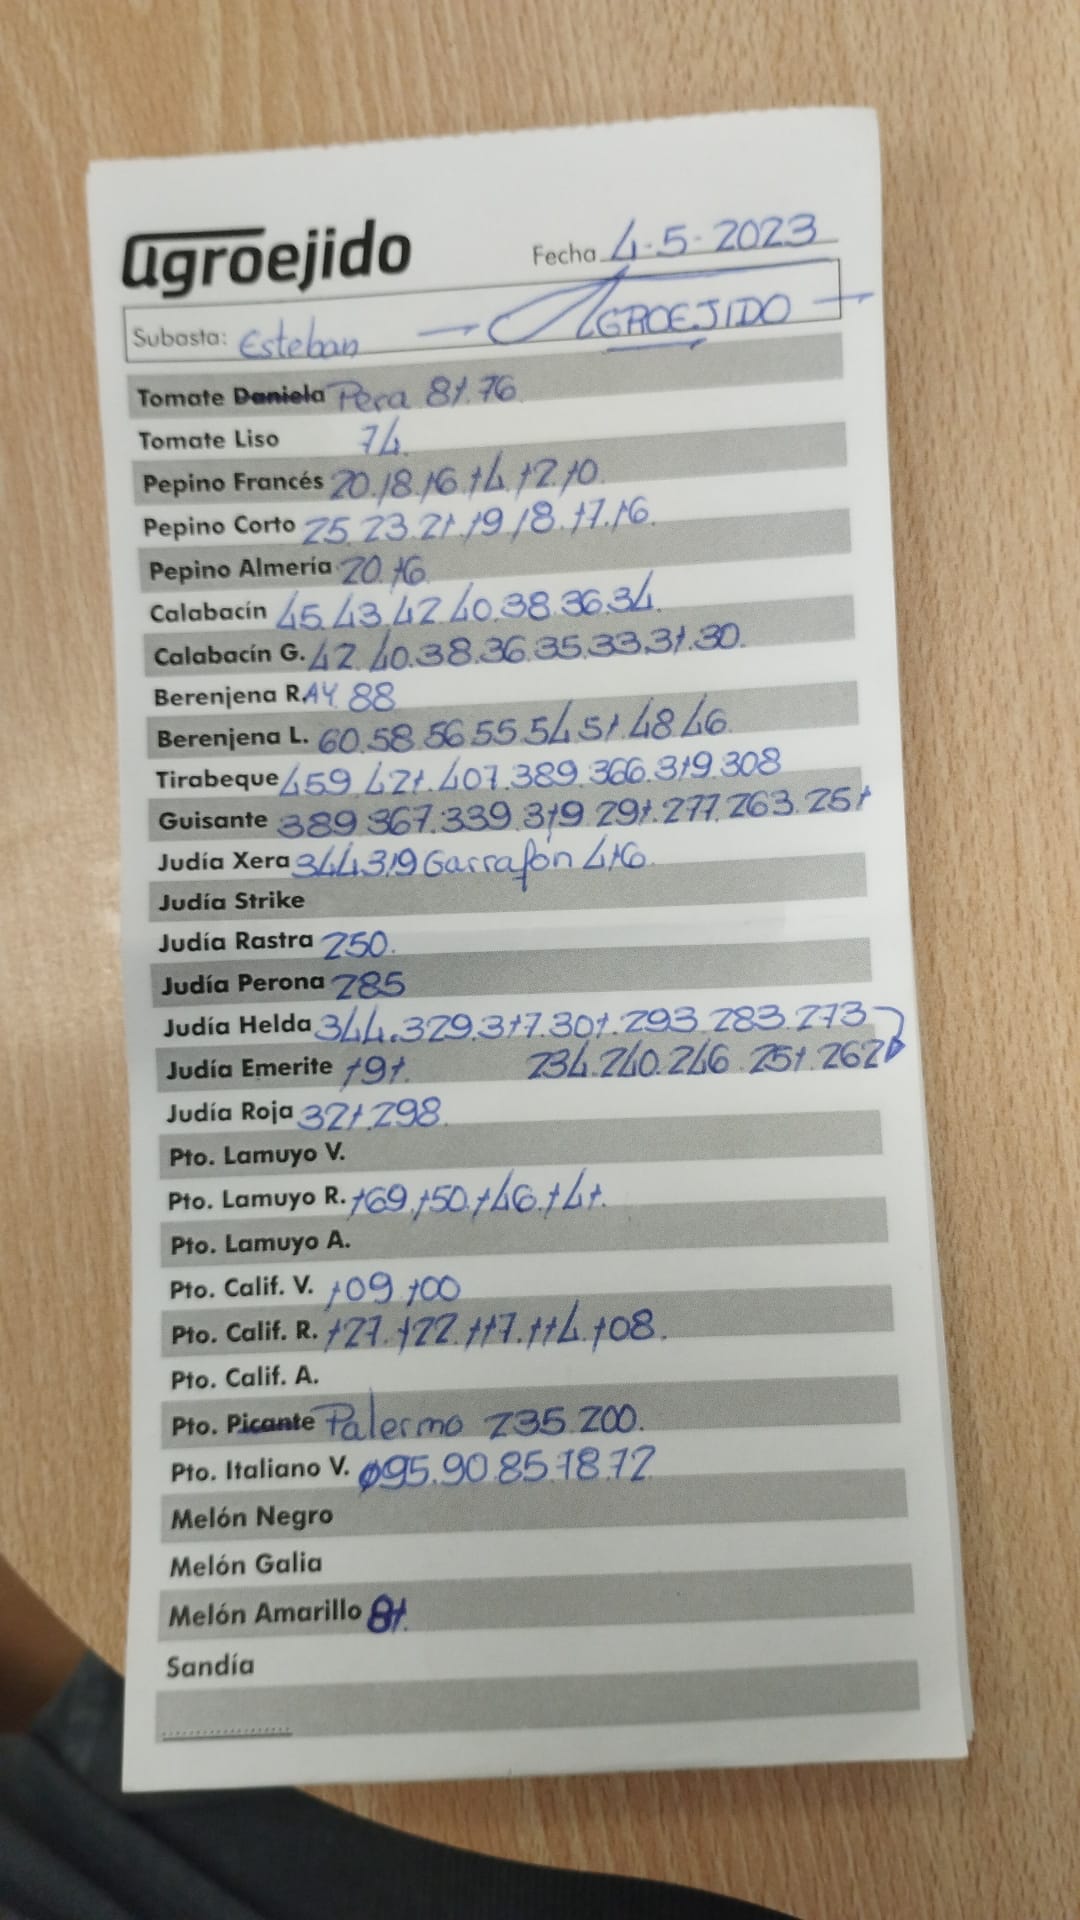 agroejido
Fecha 4-5-2023
Subasta: Esteban → AGROEJIDO
Tomate Daniela Pera 81.76
Tomate Liso 74.
Pepino Francés 20.18.16.14.12.10.
Pepino Corto 25.23.21.19.18.17.16.
Pepino Almería 20.16
Calabacín 45.43.42.40.38.36.34.
Calabacín G. 42.40.38.36.35.33.31.30.
Berenjena R.AY. 88
Berenjena L. 60.58.56.55.54.51.48.46.
Tirabeque 459.421.407.389.366.319.308
Guisante 389.367.339.319.291.277.263.251
Judía Xera 344.319 Garrafón 416.
Judía Strike
Judía Rastra 250.
Judía Perona 285
Judía Helda 344.329.317.301.293.283.273
Judía Emerite 191. 234.240.246.251.262
Judía Roja 321.298.
Pto. Lamuyo V.
Pto. Lamuyo R. 169.150.146.141.
Pto. Lamuyo A.
Pto. Calif. V. 109.100
Pto. Calif. R. 127.122.117.114.108.
Pto. Calif. A.
Pto. Picante Palermo 235.200.
Pto. Italiano V. 095.90.85.78.72
Melón Negro
Melón Galia
Melón Amarillo 81.
Sandía